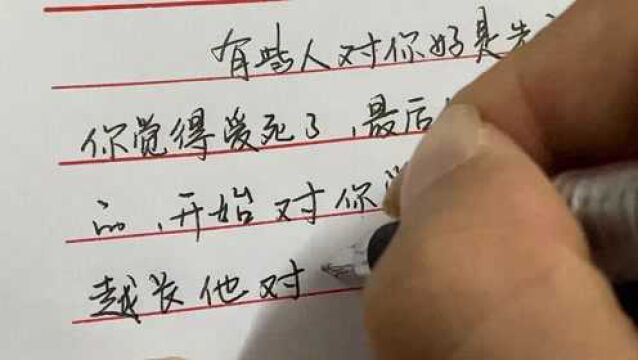 有些人对你好是先
你觉得爱死了，最后
品，开始对你觉
越长他对